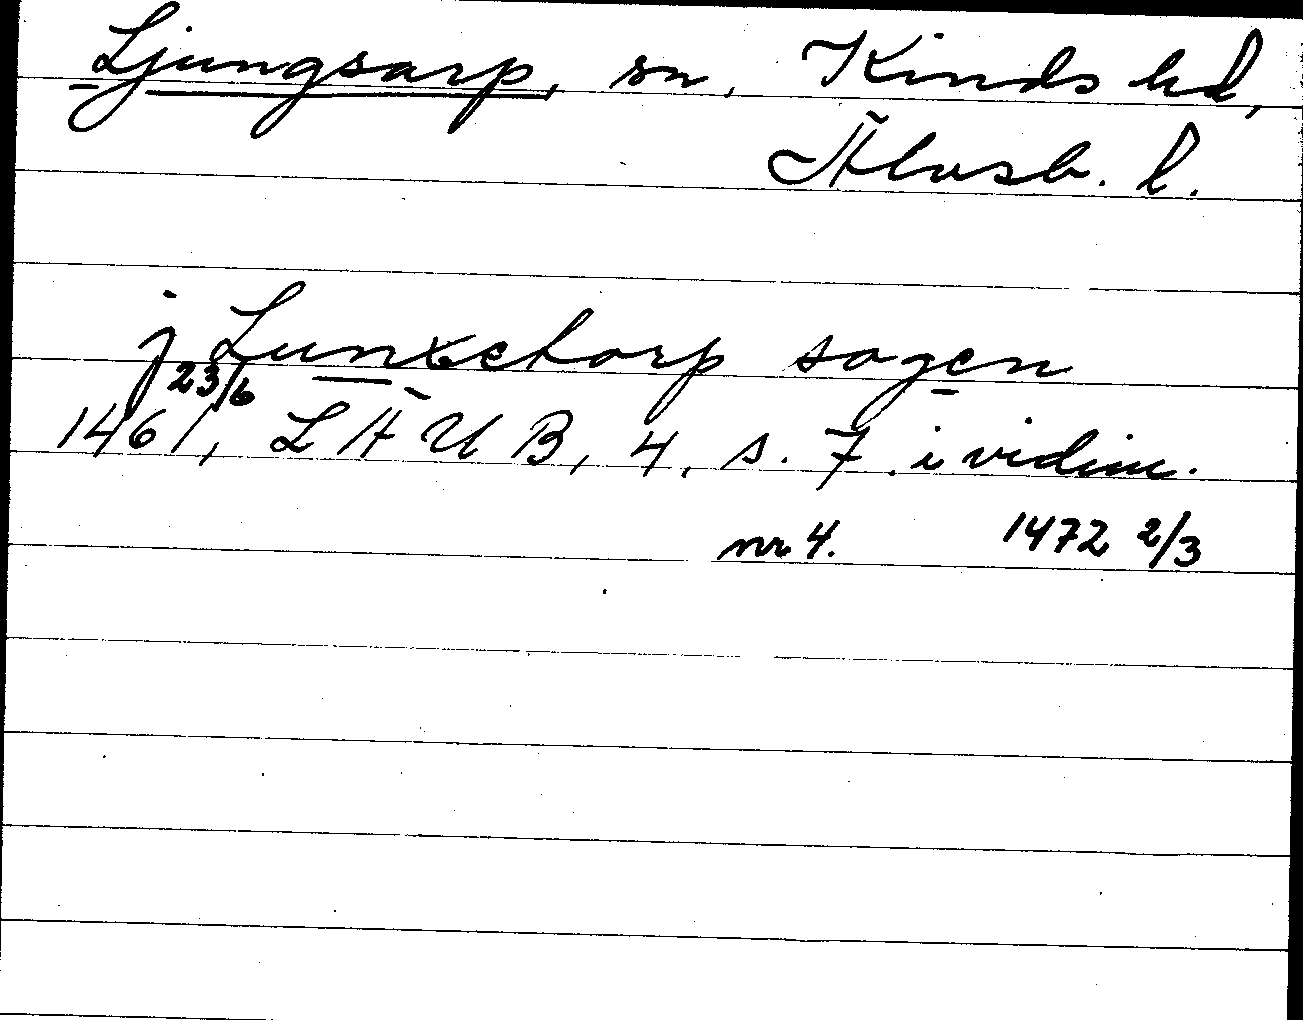 Ljungsarp, sn, Kinds hd,
Älvsb. l.
j Lunxetorp sogen
1461 23/6, LÄUB, 4, s. 7. i vidim.
nr 4. 1472 2/3